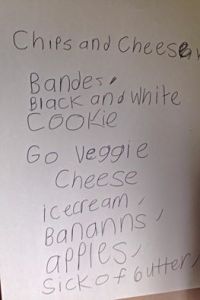 Chips and Cheese
Bandes,
Black and white
COOKie
Go Veggie
Cheese
icecream,
Bananns,
apples,
Sick of butter,